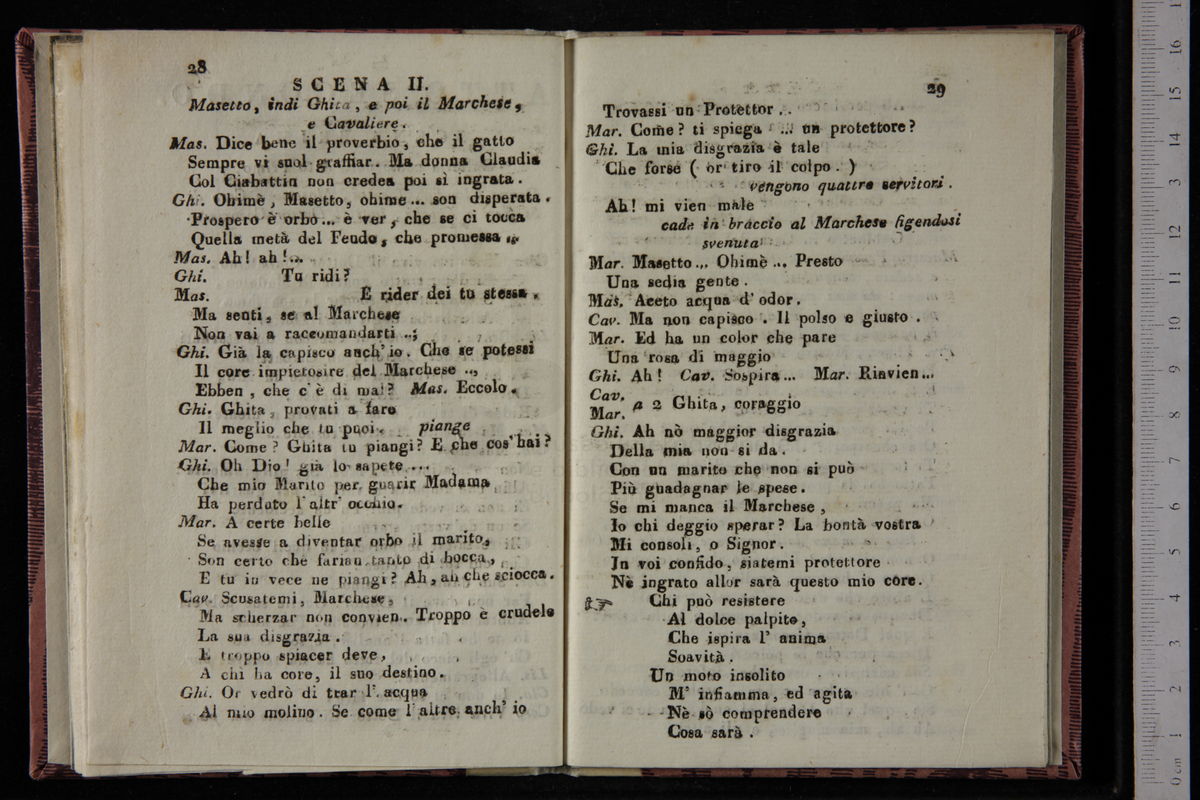 28
SCENA II.
Masetto, indi Ghita, e poi il Marchese,
e Cavaliere.
Mas. Dice bene il proverbio, che il gatto
Sempre vi suol graffiar. Ma donna Claudia
Col Ciabattin non credea poi sì ingrata.
Ghi. Ohimè, Masetto, ohime... son disperata.
Prospero è orbo... è ver, che se ci tocca
Quella metà del Feudo, che promessa ...
Mas. Ah! ah!...
Ghi. Tu ridi?
Mas. E rider dei tu stessa.
Ma senti, se al Marchese
Non vai a raccomandarti ...
Ghi. Già la capisco anch' io. Che se potessi
Il core impietosire del Marchese ...
Ebben, che c' è di mai? Mas. Eccolo.
Ghi. Ghita, provati a fare
Il meglio che tu puoi. piange
Mar. Come? Ghita tu piangi? E che cos' hai?
Ghi. Oh Dio! già lo sapete ...
Che mio Marito per guarir Madama
Ha perduto l' altr' occhio.
Mar. A certe belle
Se avesse a diventar orbo il marito,
Son certo che farian tanto di bocca,
E tu in vece ne piangi? Ah, ah che sciocca.
Cav. Scusatemi, Marchese,
Ma scherzar non convien. Troppo è crudele
La sua disgrazia.
E troppo spiacer deve,
A chi ha core, il suo destino.
Ghi. Or vedrò di trar l' acqua
Al mio molino. Se come l' altre anch' io
29
Trovassi un Protettor ...
Mar. Come? ti spiega ... un protettore?
Ghi. La mia disgrazia è tale
Che forse ( or tiro il colpo. )
vengono quattro servitori.
Ah! mi vien male
cade in braccio al Marchese figendosi
svenuta
Mar. Masetto... Ohimè ... Presto
Una sedia gente.
Mas. Aceto acqua d' odor.
Cav. Ma non capisco. Il polso e giusto.
Mar. Ed ha un color che pare
Una rosa di maggio
Ghi. Ah! Cav. Sospira... Mar. Rinvien...
Cav.
Mar. a 2 Ghita, coraggio
Ghi. Ah nò maggior disgrazia
Della mia non si da.
Con un marito che non si può
Più guadagnar le spese.
Se mi manca il Marchese,
Io chi deggio sperar? La bontà vostra
Mi consoli, o Signor.
In voi confido, siatemi protettore
Nè ingrato allor sarà questo mio core.
☞ Chi può resistere
Al dolce palpito,
Che ispira l' anima
Soavità.
Un moto insolito
M' infiamma, ed agita
Nè sò comprendere
Cosa sarà.
0 cm 1 2 3 4 5 6 7 8 9 10 11 12 13 14 15 16